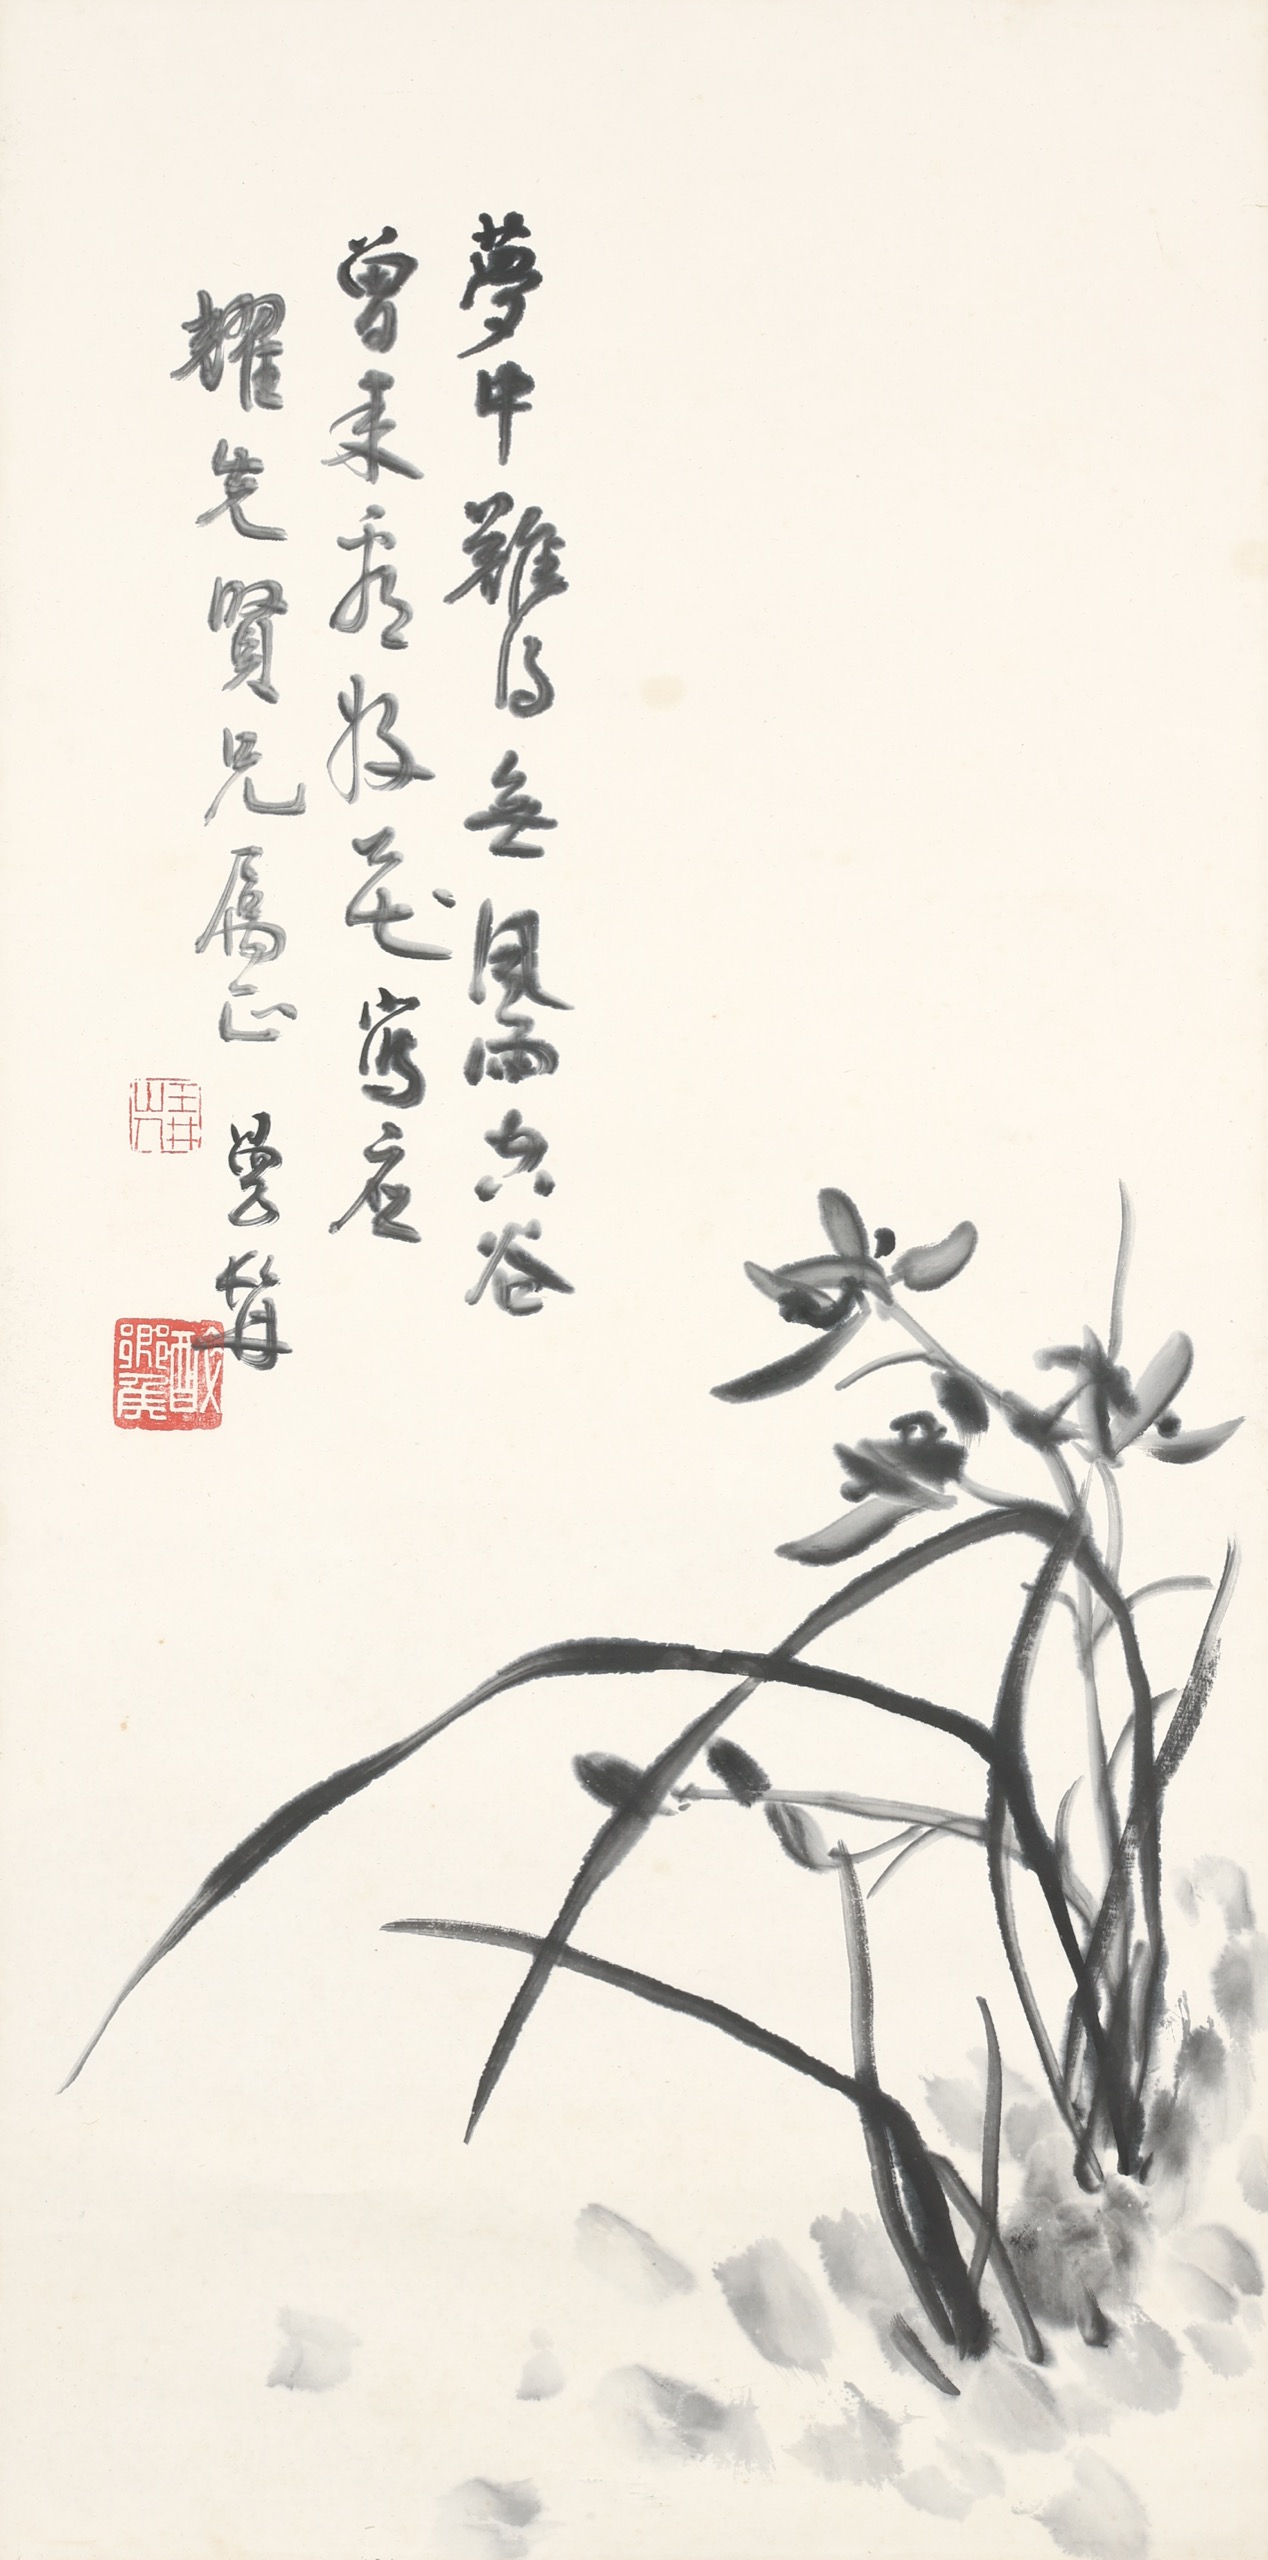 夢中難得無風雨空谷
曾来看花寫應
耀先賢兄屬正 曼髯
玉井山人